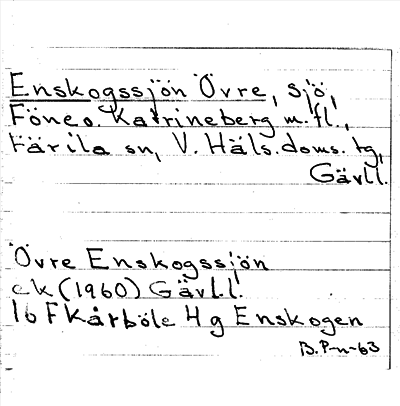 Enskogssjön Övre, sjö,
Föne o. Katrineberg m.fl.,
Färila sn, V. Häls. doms. tg,
Gävll.
Övre Enskogssjön
ek (1960) Gävl.l.
16 F Kårböle 4 g Enskogen
B. P-n-63